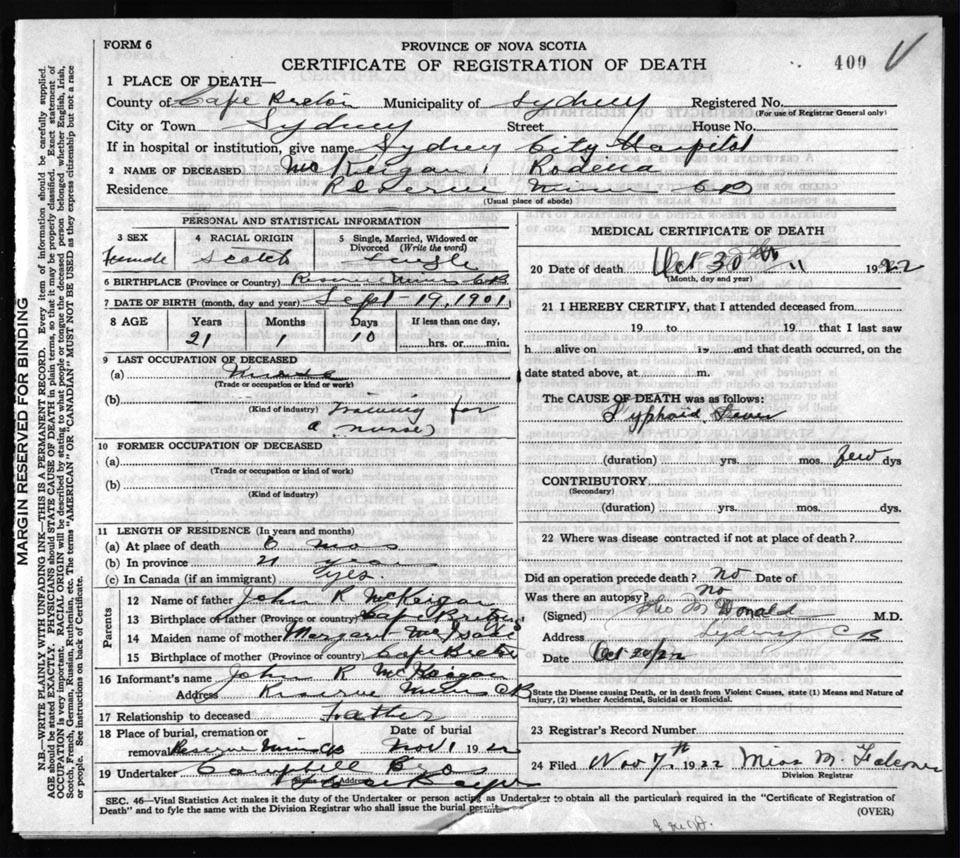 FORM 6
PROVINCE OF NOVA SCOTIA
CERTIFICATE OF REGISTRATION OF DEATH
400
1 PLACE OF DEATH—
County of Cape Breton Municipality of Sydney Registered No.
(For use of Registrar General only)
City or Town Sydney Street House No.
If in hospital or institution, give name Sydney City Hospital
2 NAME OF DECEASED McKeigan, Rodena
Residence Reserve Mines CB
(Usual place of abode)
PERSONAL AND STATISTICAL INFORMATION
3 SEX 4 RACIAL ORIGIN 5 Single, Married, Widowed or Divorced (Write the word)
Female Scotch Single
6 BIRTHPLACE (Province or Country) Reserve Mines CB
7 DATE OF BIRTH (month, day and year) Sept-19, 1901
8 AGE Years Months Days If less than one day,
21 1 10 hrs. or min.
9 LAST OCCUPATION OF DECEASED
(a) Nurse
(Trade or occupation or kind or work)
(b)
(Kind of industry) Training for
a nurse
10 FORMER OCCUPATION OF DECEASED
(a)
(Trade or occupation or kind of work)
(b)
(Kind of industry)
11 LENGTH OF RESIDENCE (In years and months)
(a) At place of death mos
(b) In province 21 years
(c) In Canada (if an immigrant) yes.
Parents
12 Name of father John R McKeigan
13 Birthplace of father (Province or country) Cape Breton
14 Maiden name of mother Margaret
15 Birthplace of mother (Province or country) Cape Breton
16 Informant's name John R McKeigan
Address Reserve Mines CB
17 Relationship to deceased Father
18 Place of burial, cremation or Date of burial
removal Reserve Mines CB Nov 1 1922
19 Undertaker Campbell Bros
Address
MEDICAL CERTIFICATE OF DEATH
20 Date of death Oct 30 1922
(Month, day and year)
21 I HEREBY CERTIFY, that I attended deceased from
19 to 19 that I last saw
h alive on 19 and that death occurred, on the
date stated above, at m.
The CAUSE OF DEATH was as follows:
Typhoid Fever
(duration) yrs. mos. few dys
CONTRIBUTORY
(Secondary)
(duration) yrs. mos. dys.
22 Where was disease contracted if not at place of death?
Did an operation precede death? no Date of
Was there an autopsy? No
(Signed) McDonald M.D.
Address Sydney C B
Date Oct /22
State the Disease causing Death, or in death from Violent Causes, state (1) Means and Nature of
Injury, (2) whether Accidental, Suicidal or Homicidal.
23 Registrar's Record Number
24 Filed Nov 7th 1922 Miss M.
Division Registrar
SEC. 46—Vital Statistics Act makes it the duty of the Undertaker or person acting as Undertaker to obtain all the particulars required in the "Certificate of Registration of
Death" and to fyle the same with the Division Registrar who shall issue the burial permit.
(OVER)
MARGIN RESERVED FOR BINDING
N.B.—WRITE PLAINLY WITH UNFADING INK—THIS IS A PERMANENT RECORD. Every item of information should be carefully supplied.
AGE should be stated EXACTLY. PHYSICIANS should STATE CAUSE OF DEATH in plain terms, so that it may be properly classified. Exact statement of
OCCUPATION is very important. RACIAL ORIGIN will be described by stating to what people or tongue the deceased person belonged whether English, Irish,
Scotch, French, German, Russian, Ruthenian, etc. The terms "AMERICAN" OR "CANADIAN" MUST NOT BE USED as they express citizenship but not a race
or people. See instructions on back of Certificate.